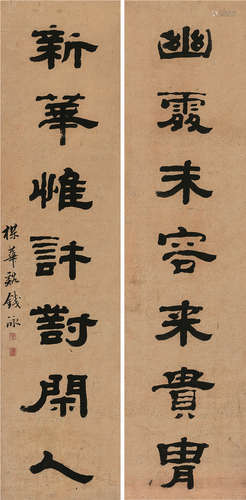 幽霞未容来貴胄
新華惟許對閑人
楳華谿錢泳